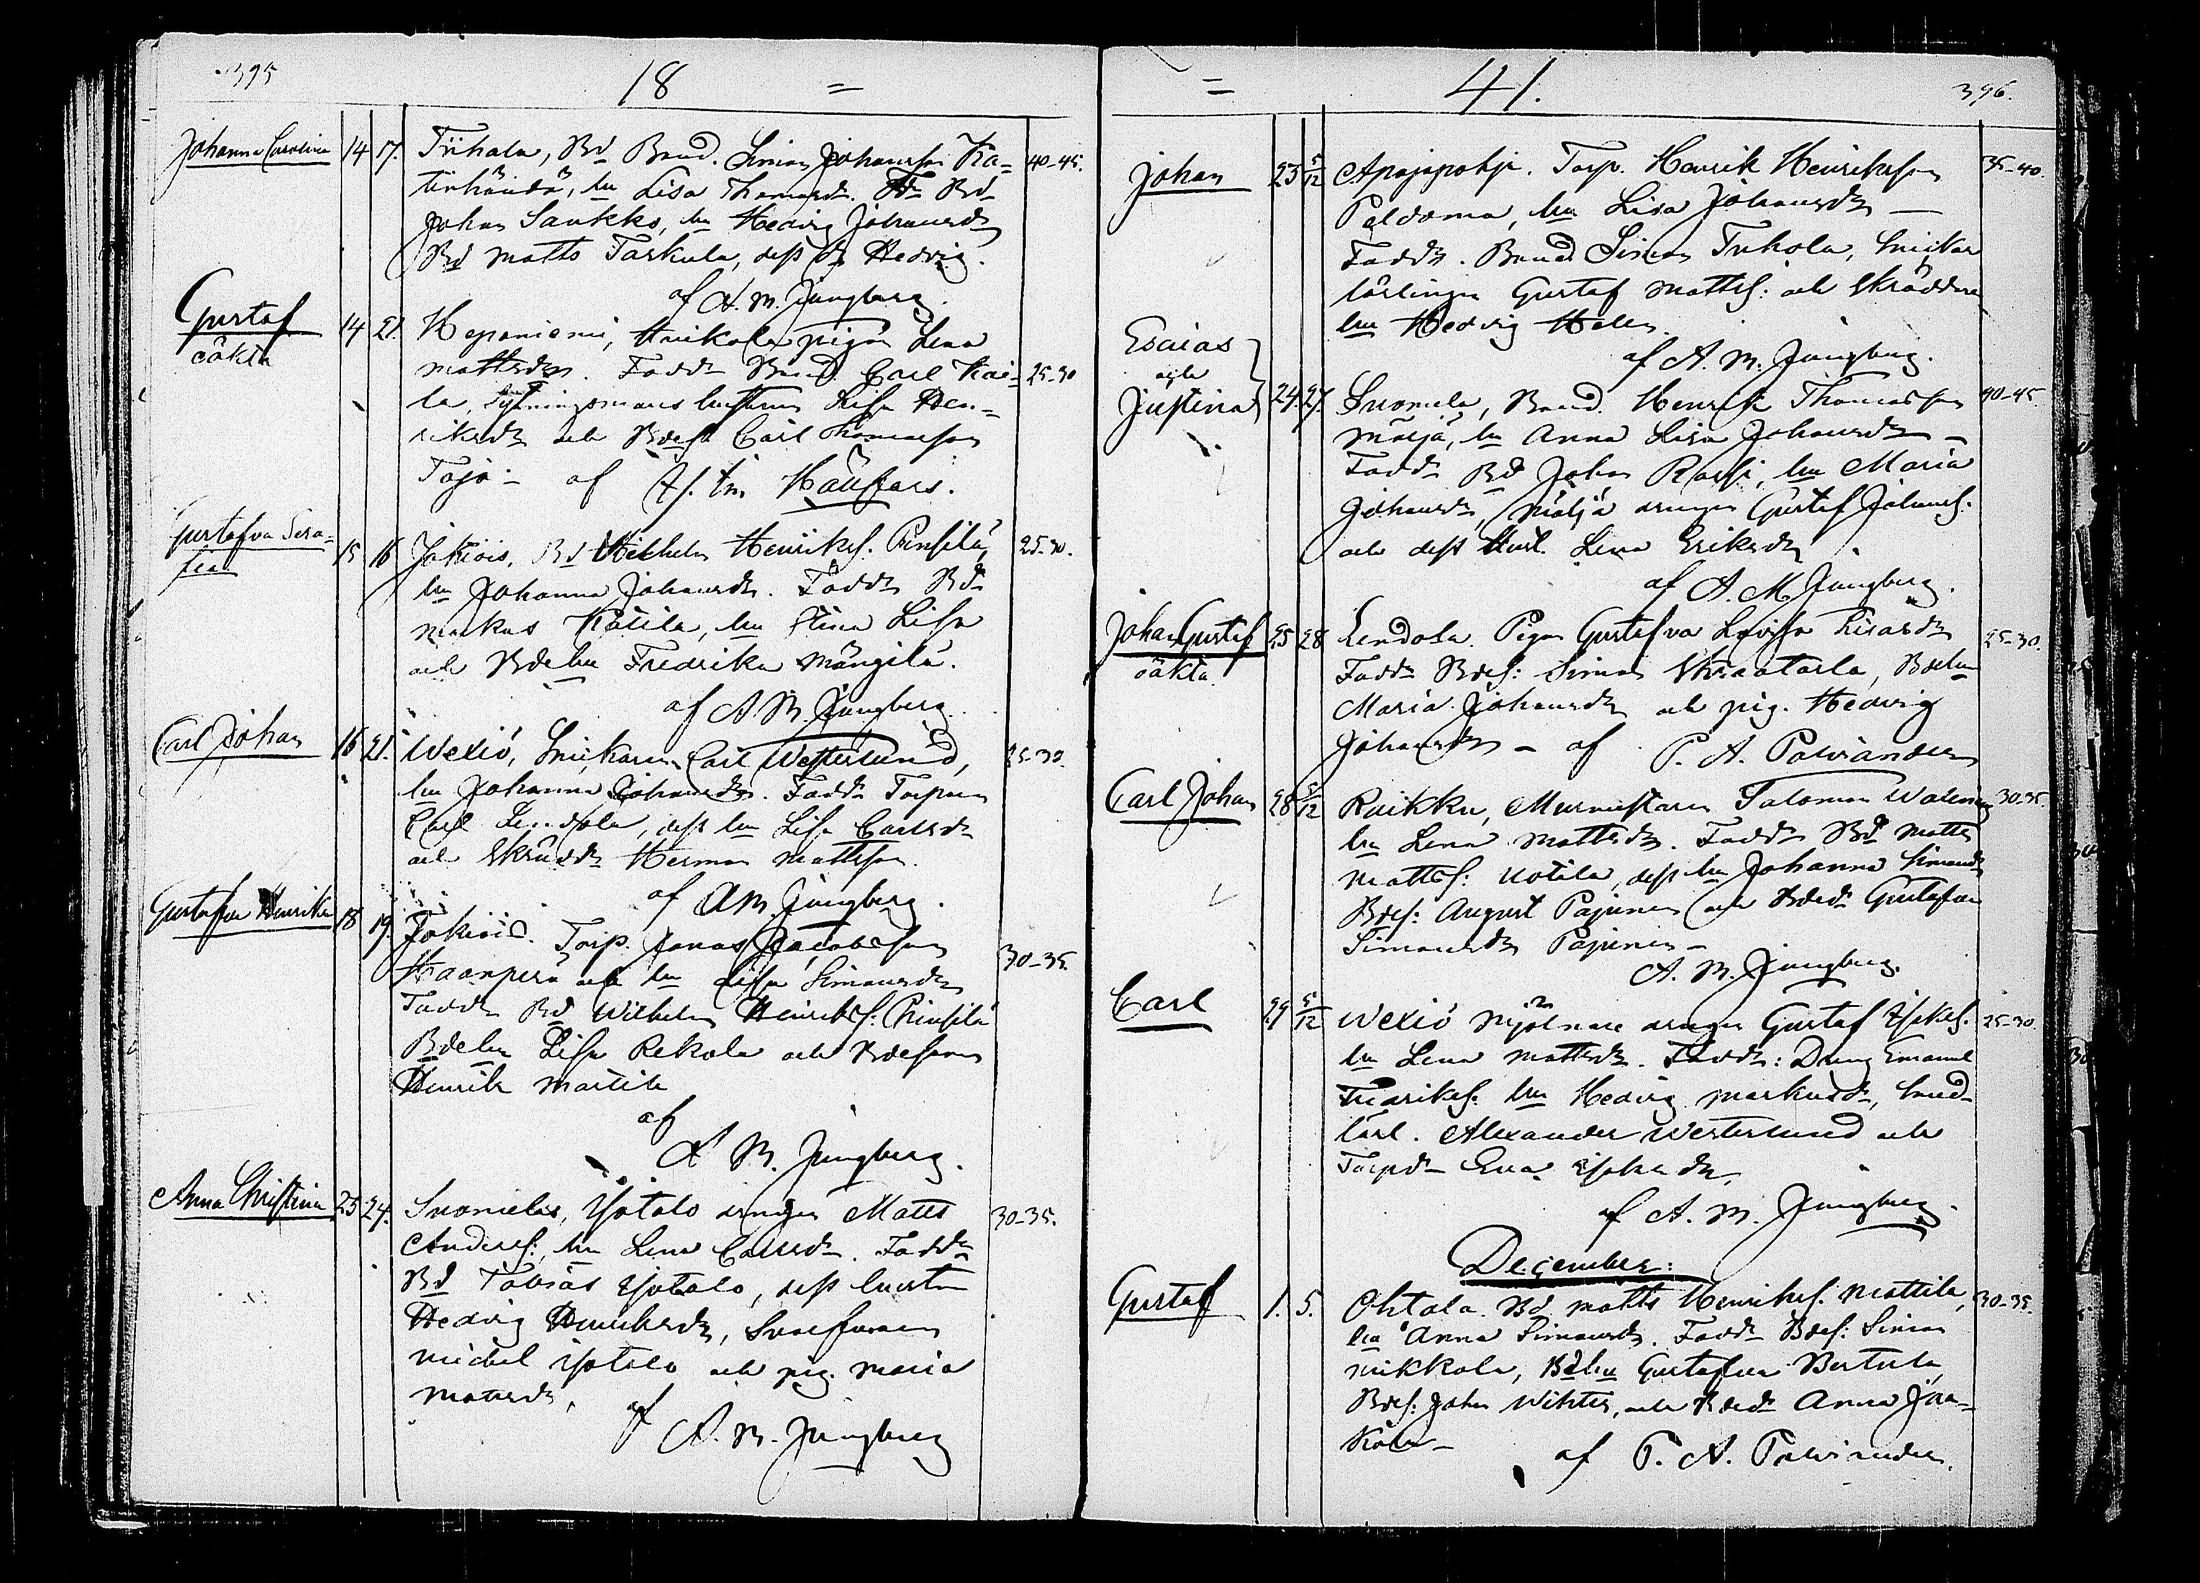 395
18 =
Johanna Carolina 14 17. Tuhala, Bd Bond. Simon Johansson Ka- 40-45.
tinhändä, hu Lisa Thomasdr. Fdr Bd
Johan Saukko, hu Hedvig Johansdr
Bd Matts Taskula, dess dr Hedvig.
af A. M. Ljungberg.
Gustaf 14 21. Heponiemi, pigan Lena
oäkta
Mattsdr. Faddr Bond. Carl Kai- 25-30
la, hustrun Lisa Hen-
riksdr och Bdes Carl Thomasson
Tojo - af
Gustafva Sera- 15 16 Jokiois, Bd Wilhelm Henriks. Pinsilä, 25-30.
fia
hu Johanna Johansdr. Faddr Bdr
Markus Kotila, hu Stina Lisa
och Bdehu Fredrika Mängilä.
af A. M. Ljungberg.
Carl Johan 16 21. Wexiö, Snickaren Carl Westerlund, 25-30.
hu Johanna Johansdr. Faddr Torparen
Carl Lendola, dess hu Lisa Carlsdr
och Skrädd. Herman Mattsson.
af A. M. Ljungberg.
Gustafva Henrika 18 19. Jokiois. Torp. Jonas Jacobsson 30-35.
Haanperä och hu Lisa Simonsdr
Faddr Bd Wilhelm Henriks: Pinsilä
Bdehu Lisa Rekola och Bdesonen
Henrik Martila
af
A. M. Ljungberg.
Anna Christina 23 24. Suomela, Isotalo drängen Matts 30-35.
Anders: hu Lena Carlsdr. Faddr
Bd Tobias Isotalo, dess hustru
Hedvig Henriksdr,
Michel Isotalo och pig. Maria
Mattsdr,
af
A. M. Ljungberg
= 41. 396.
Johan 23 5/12 Apajapohja. Torp. Henrik Henriksson 35-40.
Paldama, hu Lisa Johansdr —
Faddr. Bond Simon Tuhola, Snickar
lärlingen Gustaf Matts: och Skräddare
hu Hedvig Helen.
af A. M. Ljungberg.
Esaias
och
Justina 24. 27. Suomela, Bond. Henrik Thomasson 40-45.
Mäljä, hu Anna Lisa Johansdr —
Faddr Bd Johan Rossi, hu Maria
Johansdr, Mäljä drängen Gustaf Johans.
och dess Hust. Lena Eriksdr
af A. M. Ljungberg.
Johan Gustaf 25 28 Lendola. Pigan Gustafva Lovisa Isaksdr 25-30.
oäkta
Faddr Bdes: Simon Skraatarla, Bdehu
Maria Johansdr och pig. Hedvig
Johansdr — af P. A. Palviander
Carl Johan 28 5/12 Ruikka, Murmästaren Salomon Walenius 30-35.
hu Lena Mattsdr. Faddr Bd Matts
Matts: Uotila, dess hu Johanna Simonsdr
Bdes: August Pajunen och Bdedr Gustafva
Simonsdr Pajunen —
A. M. Ljungberg.
Carl 29 5/12 Wexiö Mjölnare drängen Gustaf Isaks. 25-30.
hu Lena Mattsdr. Faddr: Dräng Emanuel
Fredriks. hu Hedvig Markusdr, Smed-
lärl. Alexander Westerlund och
Torpdr Eva Isaksdr,
af A. M. Ljungberg.
December:
Gustaf 1. 5. Ohtola Bd. Matts Henriks. Mattila, 30-35.
hu Anna Simonsdr. Faddr Bdes: Simon
Mikkola, Bdehu Gustafva Bertula,
Bdes: Johan Wihtu, och Bdedr Anna Jaa-
kola — af P. A. Palviander.